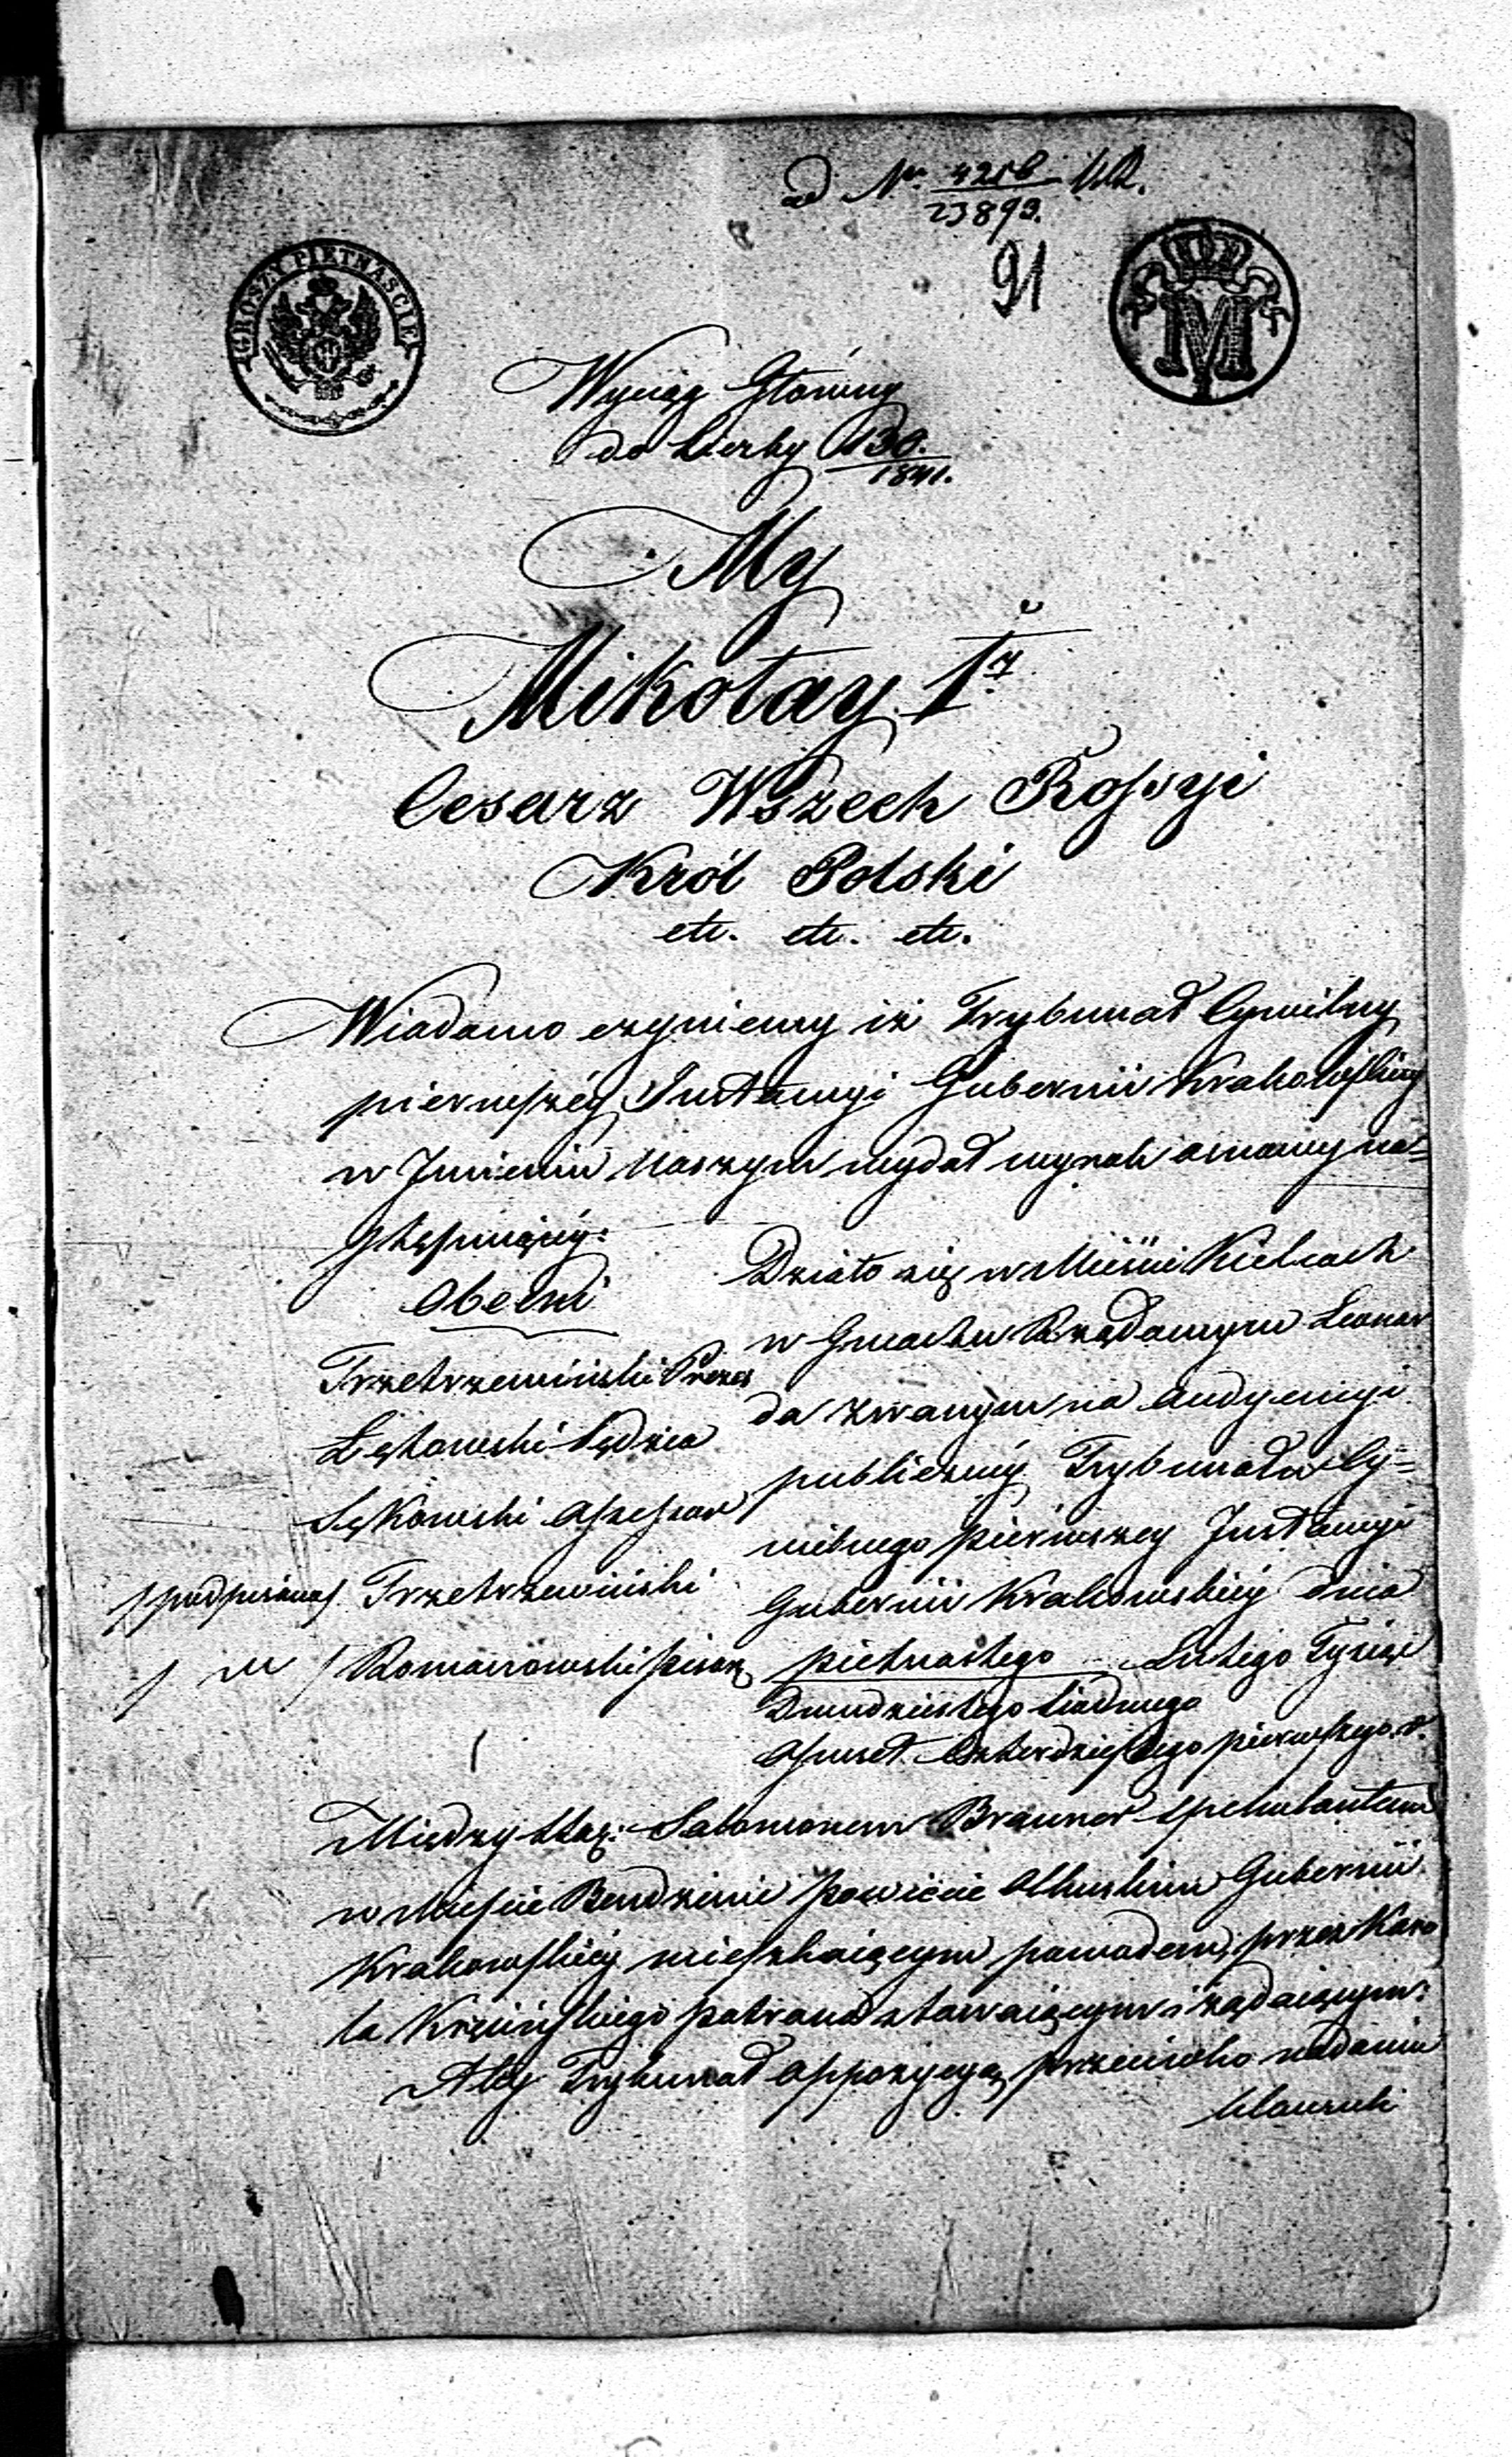 ad Nr. 4256
23893.
91
GROSZY PIETNAŚCIE
M
Wyciąg Główny
do Liczby 130.
1841.
My
Mikołay 1y
Cesarz Wszech Rossyi
Król Polski
etc. etc. etc.
Wiadomo czyniemy iż Trybunał Cywilny
pierwszéy Instancyi Gubernii Krakowskiey
w Jmieniu Naszym wydał wyrok osnowy na=
stępuiącéy:
Obecni
Trzetrzewiński Prezes
Łętowski Sędzia
Sękowski Assessor
/podpisano/ Trzetrzewiński
/ / Romanowski pisarz
Działo się w Mieście Kielcach
w Gmachu Rządowym Leonar
da zwanym na Audyencyi
publicznéy Trybunału Cy=
wilnego pierwszey Instancyi
Gubernii Krakowskiéy dnia
piętnastego Lutego Tysiąc
Dwudziestego Siódmego
Ośmset Czterdziestego pierwszego r.
Między Star: Salomonem Brauner spekulantem
w Mieście Bendzinie Powiecie Olkuskim Gubernii
Krakowskiéy mieszkaiącym powodem, przez Karo
la Krzeińskiego patrona stawaiącym i żądaiącym:
Aby Trybunał oppozycyą przeciwko nadaniu
klauzuli